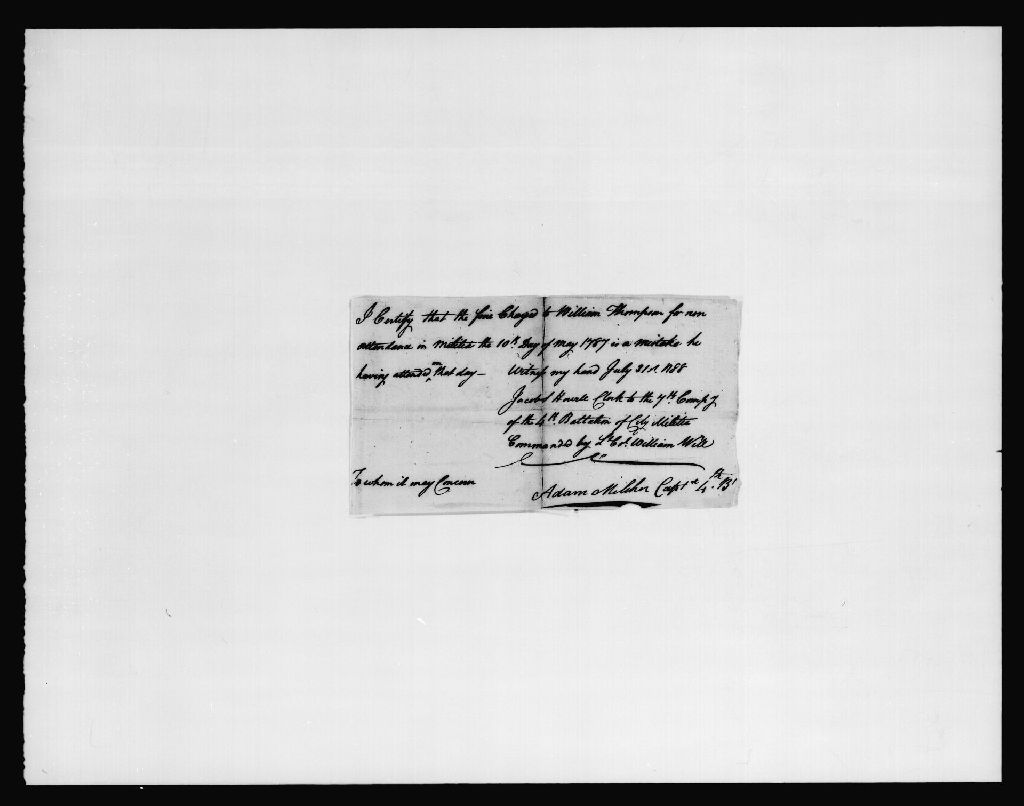 I Certify that the fine Charged to William Thompson for non
attendance in Militia the 10th. Day of may 1787 is a mistake he
having attended on that day — Witness my hand July 31st 1788
Jacob Howell Clerk to the 7th. Comp.y
of the 4th. Battalion of City Militia
Commanded by Lt. Col. William Will
To whom it may Concern
Adam Melcher Capt 4th. Bt